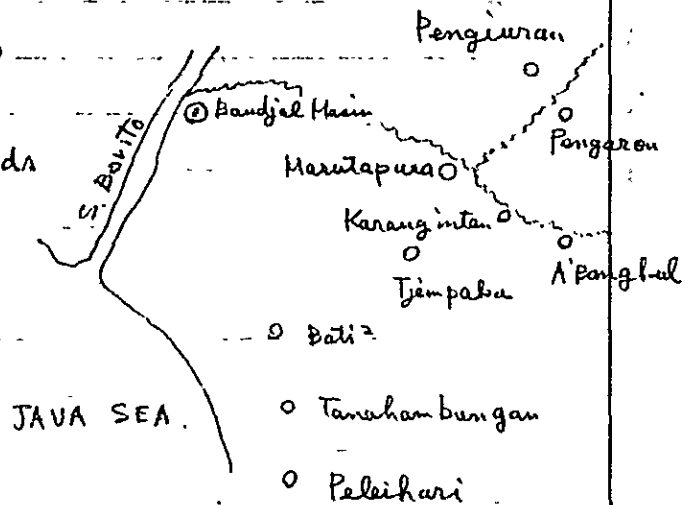 Pengiuran
S. Barito
Bandjal Masin
Pengaron
ds
Marutapura
Karangintan
A'Rangbul
Tjempaka
Bati²
JAVA SEA.
Tanahambungan
Peleihari